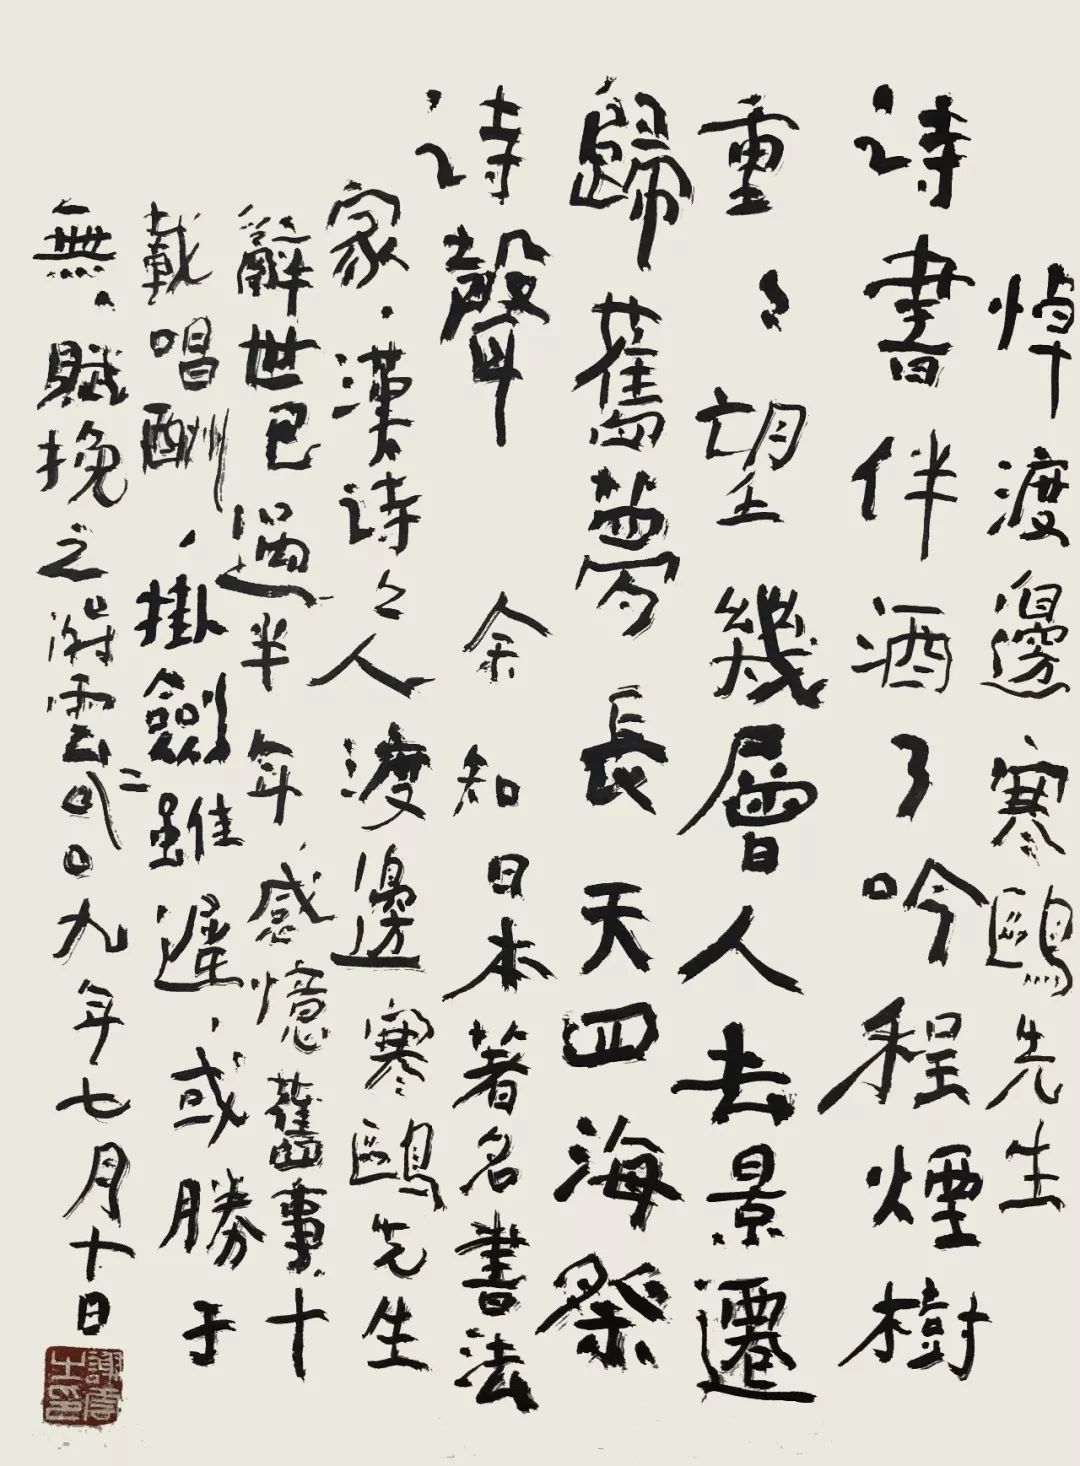 悼渡邊寒鷗先生
诗書伴酒了吟程煙樹
重重望幾層人去景遷
歸舊夢長天四海祭
诗聲
余知日本著名書法
家、漢诗诗人渡邊寒鷗先生
辭世已過半年、感憶舊事十
載唱酬、掛劍雖遲、或勝于
無、賦挽之 雲 二〇〇九年七月十日